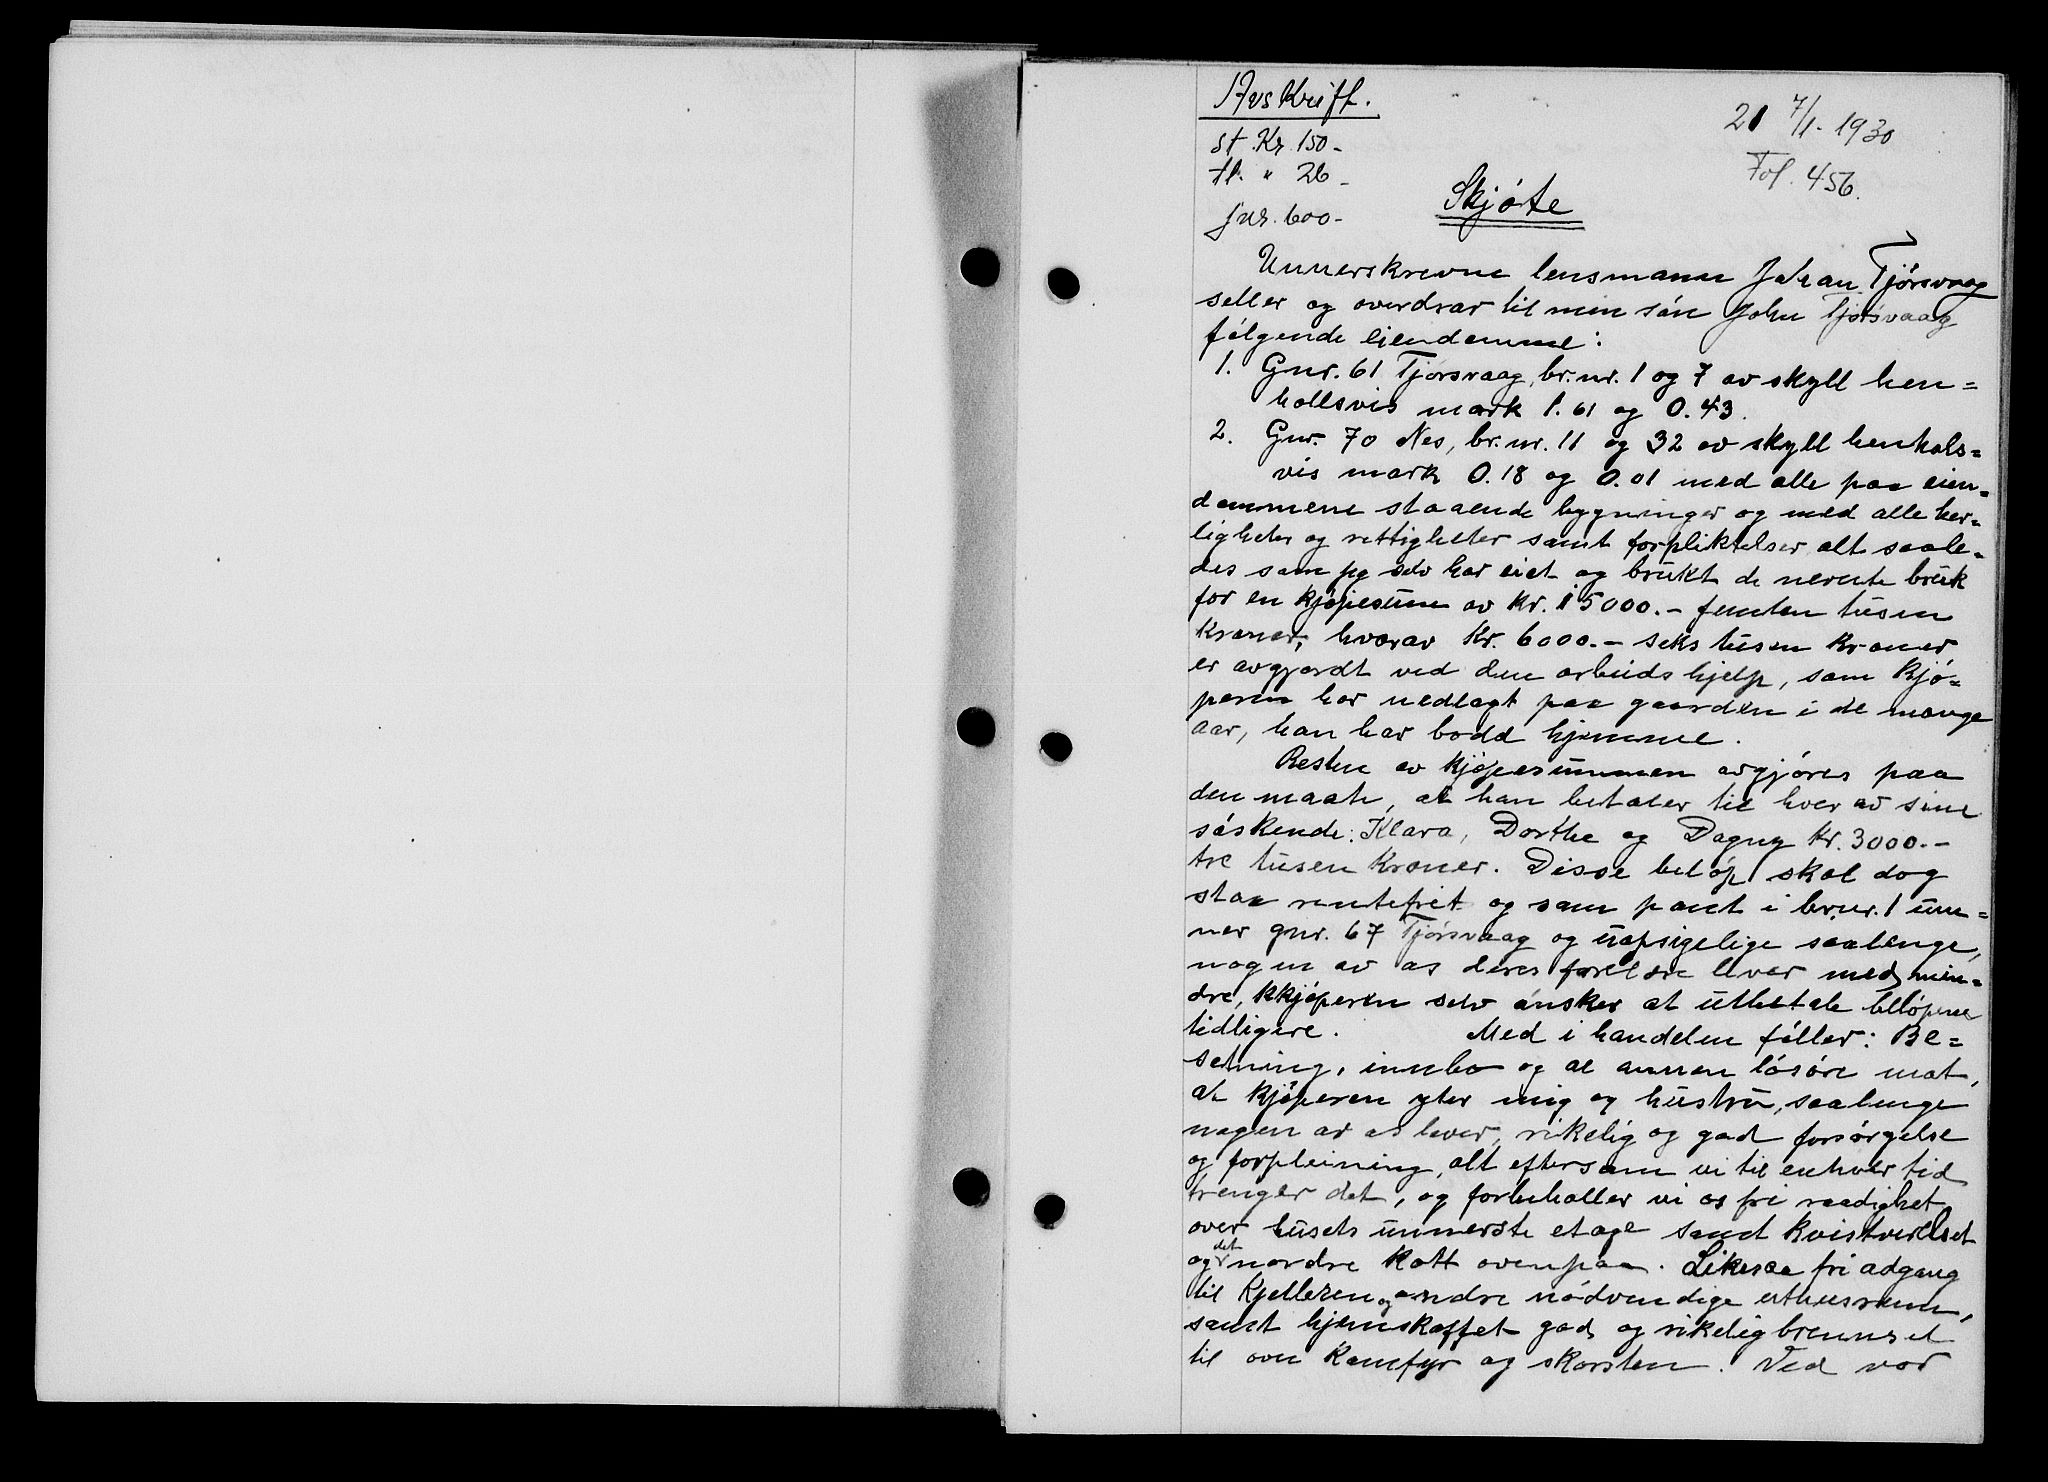 Avskrift.
st. Kr. 150.-
tl. " 26 -
jur. 600-
21 7/1. 1930
Fol. 456.
Skjöte
Unnerskrevne lensmann Johan Tjörsvaag
seller og overdrar til min sön John Tjörsvaag
fölgende eiendomme:
1. Gnr. 61 Tjörsvaag, br.nr. 1 og 7 av skyll hen=
hollsvis mark 1.61 og 0.43.
2. Gnr. 70 Nes, br.nr. 11 og 32 av skyll henhols=
vis mark 0.18 og 0.01 med alle paa eien=
dommene staaende bygninger og med alle her=
ligheter og rettigheter samt forpliktelser alt saale=
des som jeg selv har eiet og brukt de nevnte bruk
for en kjöpesum av kr. 15000.- femten tusen
kroner, hvorav kr. 6000.- seks tusen kroner
er avgjordt ved den arbeidshjelp, som kjö=
peren har nedlagt paa gaarden i de mange
aar, han har bodd hjemme.
Resten av kjöpesummen avgjöres paa
den maate, at han betaler til hver av sine
söskende: Klara, Dorthe og Dagny kr. 3000.-
tre tusen kroner. Disse belöp skal dog
staa rentefrit og som pant i br.nr. 1 un=
ner gnr. 67 Tjörsvaag og uopsigelige saalenge,
nogen av os deres foreldre lever med min=
dre, kkjöperen selv önsker at utbetale belöpene
tidligere. Med i handelen föller: Be=
setning, innbo og al annen lösöre mot,
at kjöperen yter mig og hustru, saalenge
nogen av os lever, rikelig og god forsörgelse
og forpleining, alt eftersom vi til enhver tid
trenger det, og forbeholler vi os fri raadighet
over husets unnerste etage samt kvistverelset
og det nordre kott ovenpaa. Likesaa fri adgang
til kjelleren og andre nödvendige uthusrum,
samt hjemskaffet god og rikelig brennsel
til ovn komfyr og skorsten. Ved vor